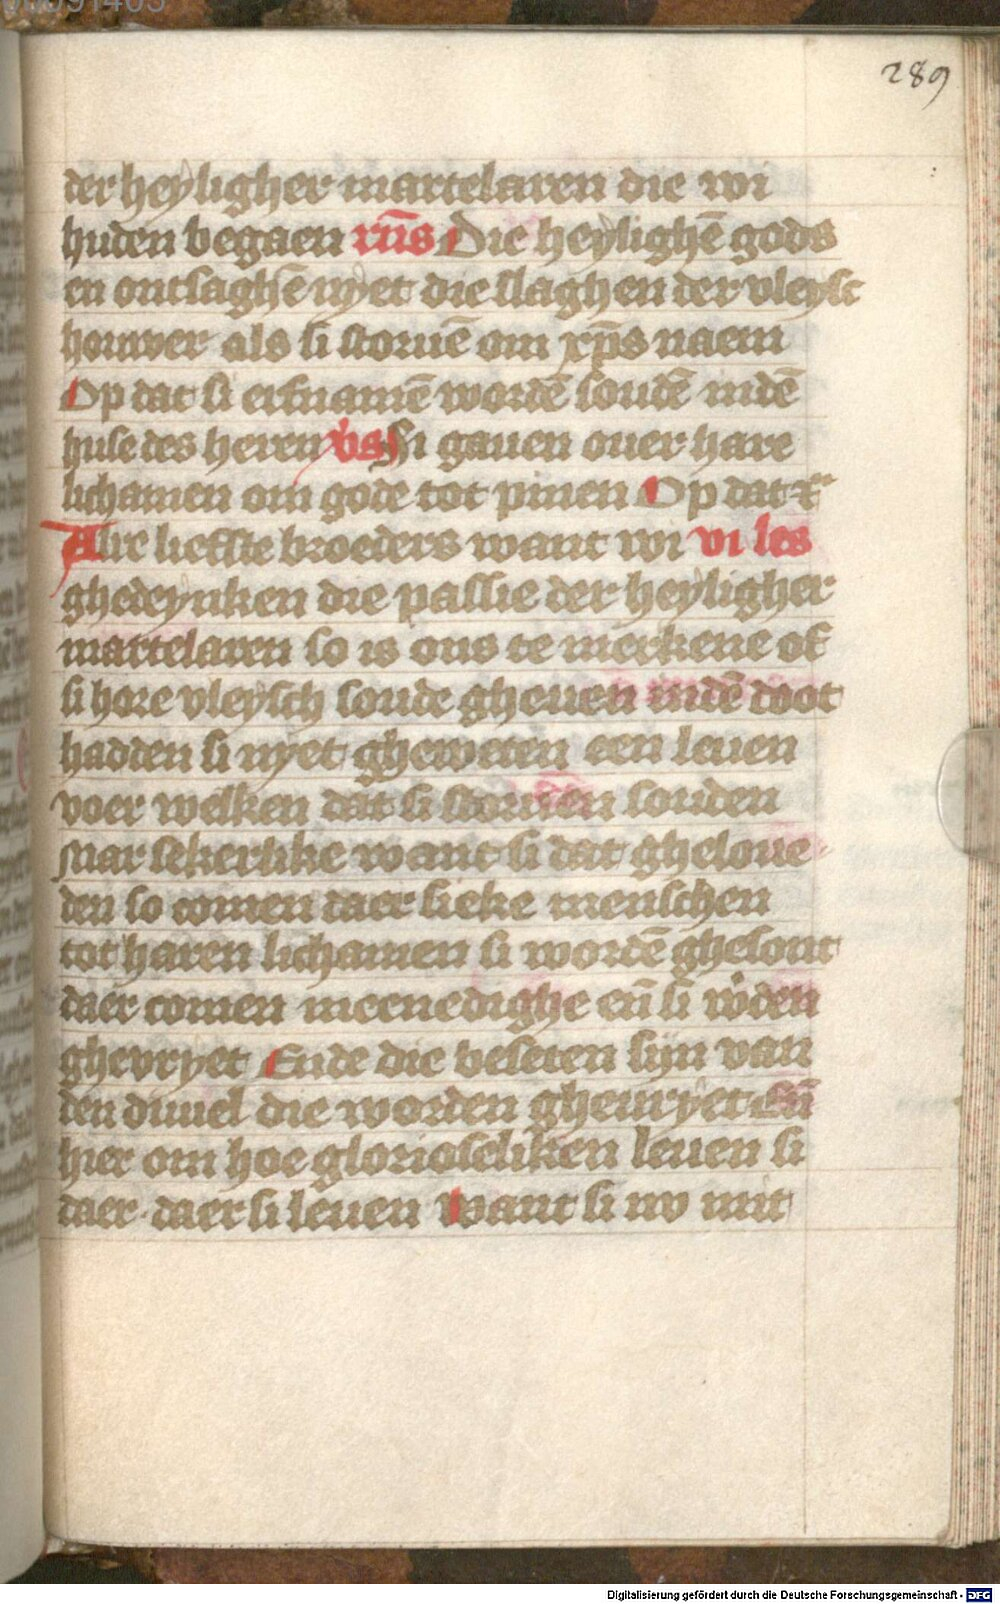 289
der heyligher martelaren die wi
huden begaen rn̄s Die heylighē gods
en ontsaghē nyet die slaghen der vleysc
houwer als si storuē om xp̄s naem
Op dat si ersnamē wordē soudē indē
huse des heren v̄s Si gauen ouer hare
lichamen om gode tot pinen Op dat
Alre liefste broeders want wi vi les
ghedeynken die passie der heyligher
martelaren so is ons te merkene of
si hore vleysch soude gheuen indē doot
hadden si nyet gheweten een leuen
voer welken dat si storuen souden
Mar sekerlike want si dat gheloue
den so comen daer sieke menschen
tot haren lichamen si wordē ghesont
daer comen meenedighe en̄ si wͦden
ghevryet Ende die beseten sijn van
den duuel die worden gheuryet En̄
hier om hoe glorioseliken leuen si
daer daer si leuen want si nv mit
Digitalisierung gefördert durch die Deutsche Forschungsgemeinschaft - DFG